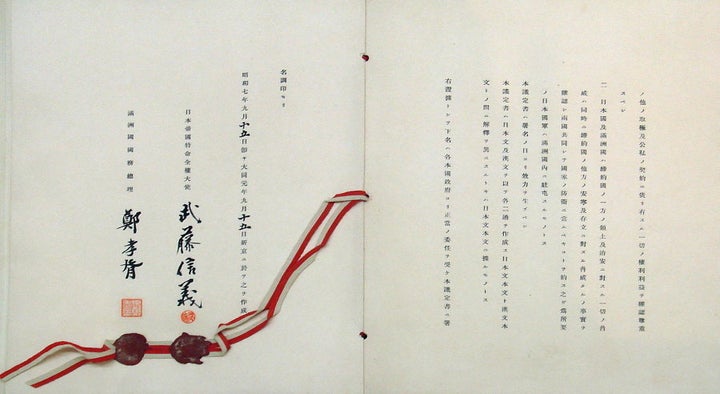 ノ他ノ取極及公私ノ契約ニ依リ有スル一切ノ權利利益ヲ確認尊重
スベシ
二、日本國及滿洲國ハ締約國ノ一方ノ領土及治安ニ對スル一切ノ脅
威ハ同時ニ締約國ノ他方ノ安寧及存立ニ對スル脅威タルノ事實ヲ
確認シ兩國共同シテ國家ノ防衛ニ當ルベキコトヲ約ス之ガ爲所要
ノ日本國軍ハ滿洲國內ニ駐屯スルモノトス
本議定書ハ署名ノ日ヨリ效力ヲ生ズベシ
本議定書ハ日本文及漢文ヲ以テ各二通ヲ作成ス日本文本文ト漢文本
文トノ間ニ解釋ヲ異ニスルトキハ日本文本文ニ據ルモノトス
右證據トシテ下名ハ各本國政府ヨリ正當ノ委任ヲ受ケ本議定書ニ署
名調印セリ
昭和七年九月十五日卽チ大同元年九月十五日新京ニ於テ之ヲ作成ス
日本帝國特命全權大使
武藤信義
滿洲國國務總理
鄭孝胥